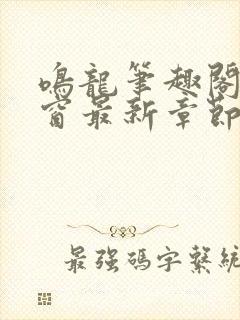 鳴龍筆趣閣
窗最新章節
最強碼字繫統